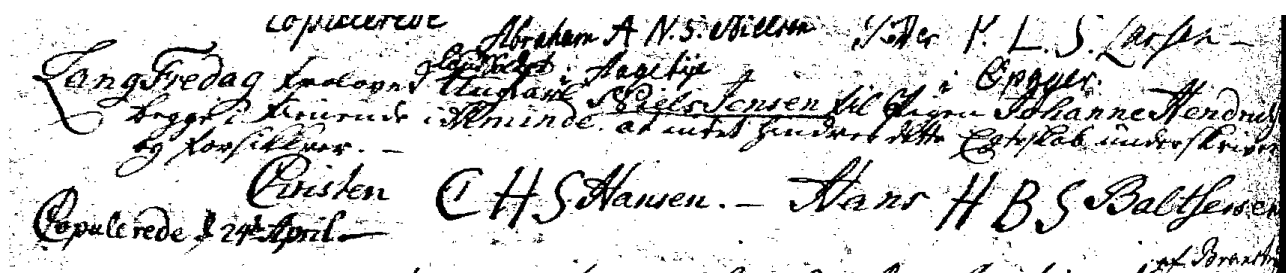 Copulerede
Abraham A N.S. Nielsen Peder P. L. S. Larsen –
i Aagerup i Epager.
Lang Fredag trolovet Ungkarl Niels Jensen til Pigen Johanne Hendrichs
begge tienende i Alminde. at intet hindrer dette Egteskab underskriver
og forsikkrer. –
Christen C H S Hansen. – Hans H B S Balthersen
Copulerede d 24de April. –
af Brandst